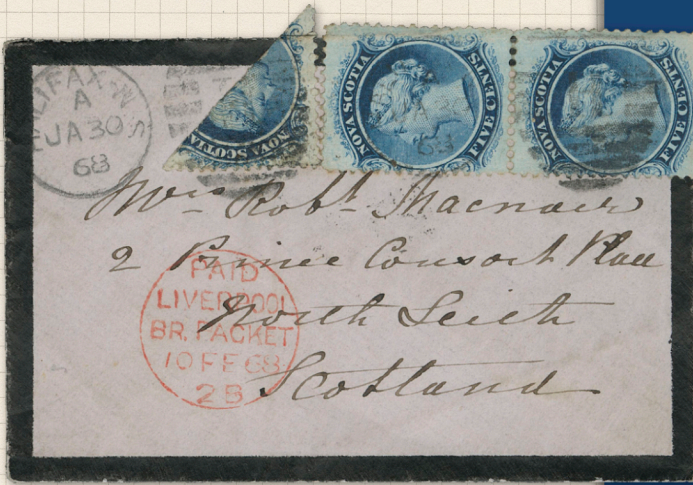 HALIFAX·N·S
A
JA 30
68
NOVA SCOTIA
NOVA SCOTIA
FIVE CENTS
NOVA SCOTIA
FIVE CENTS
Mrs Robt. Macnair
2 Prince Consort Place
North Leith
Scotland
PAID
LIVERPOOL
BR. PACKET
10 FE 68
2B